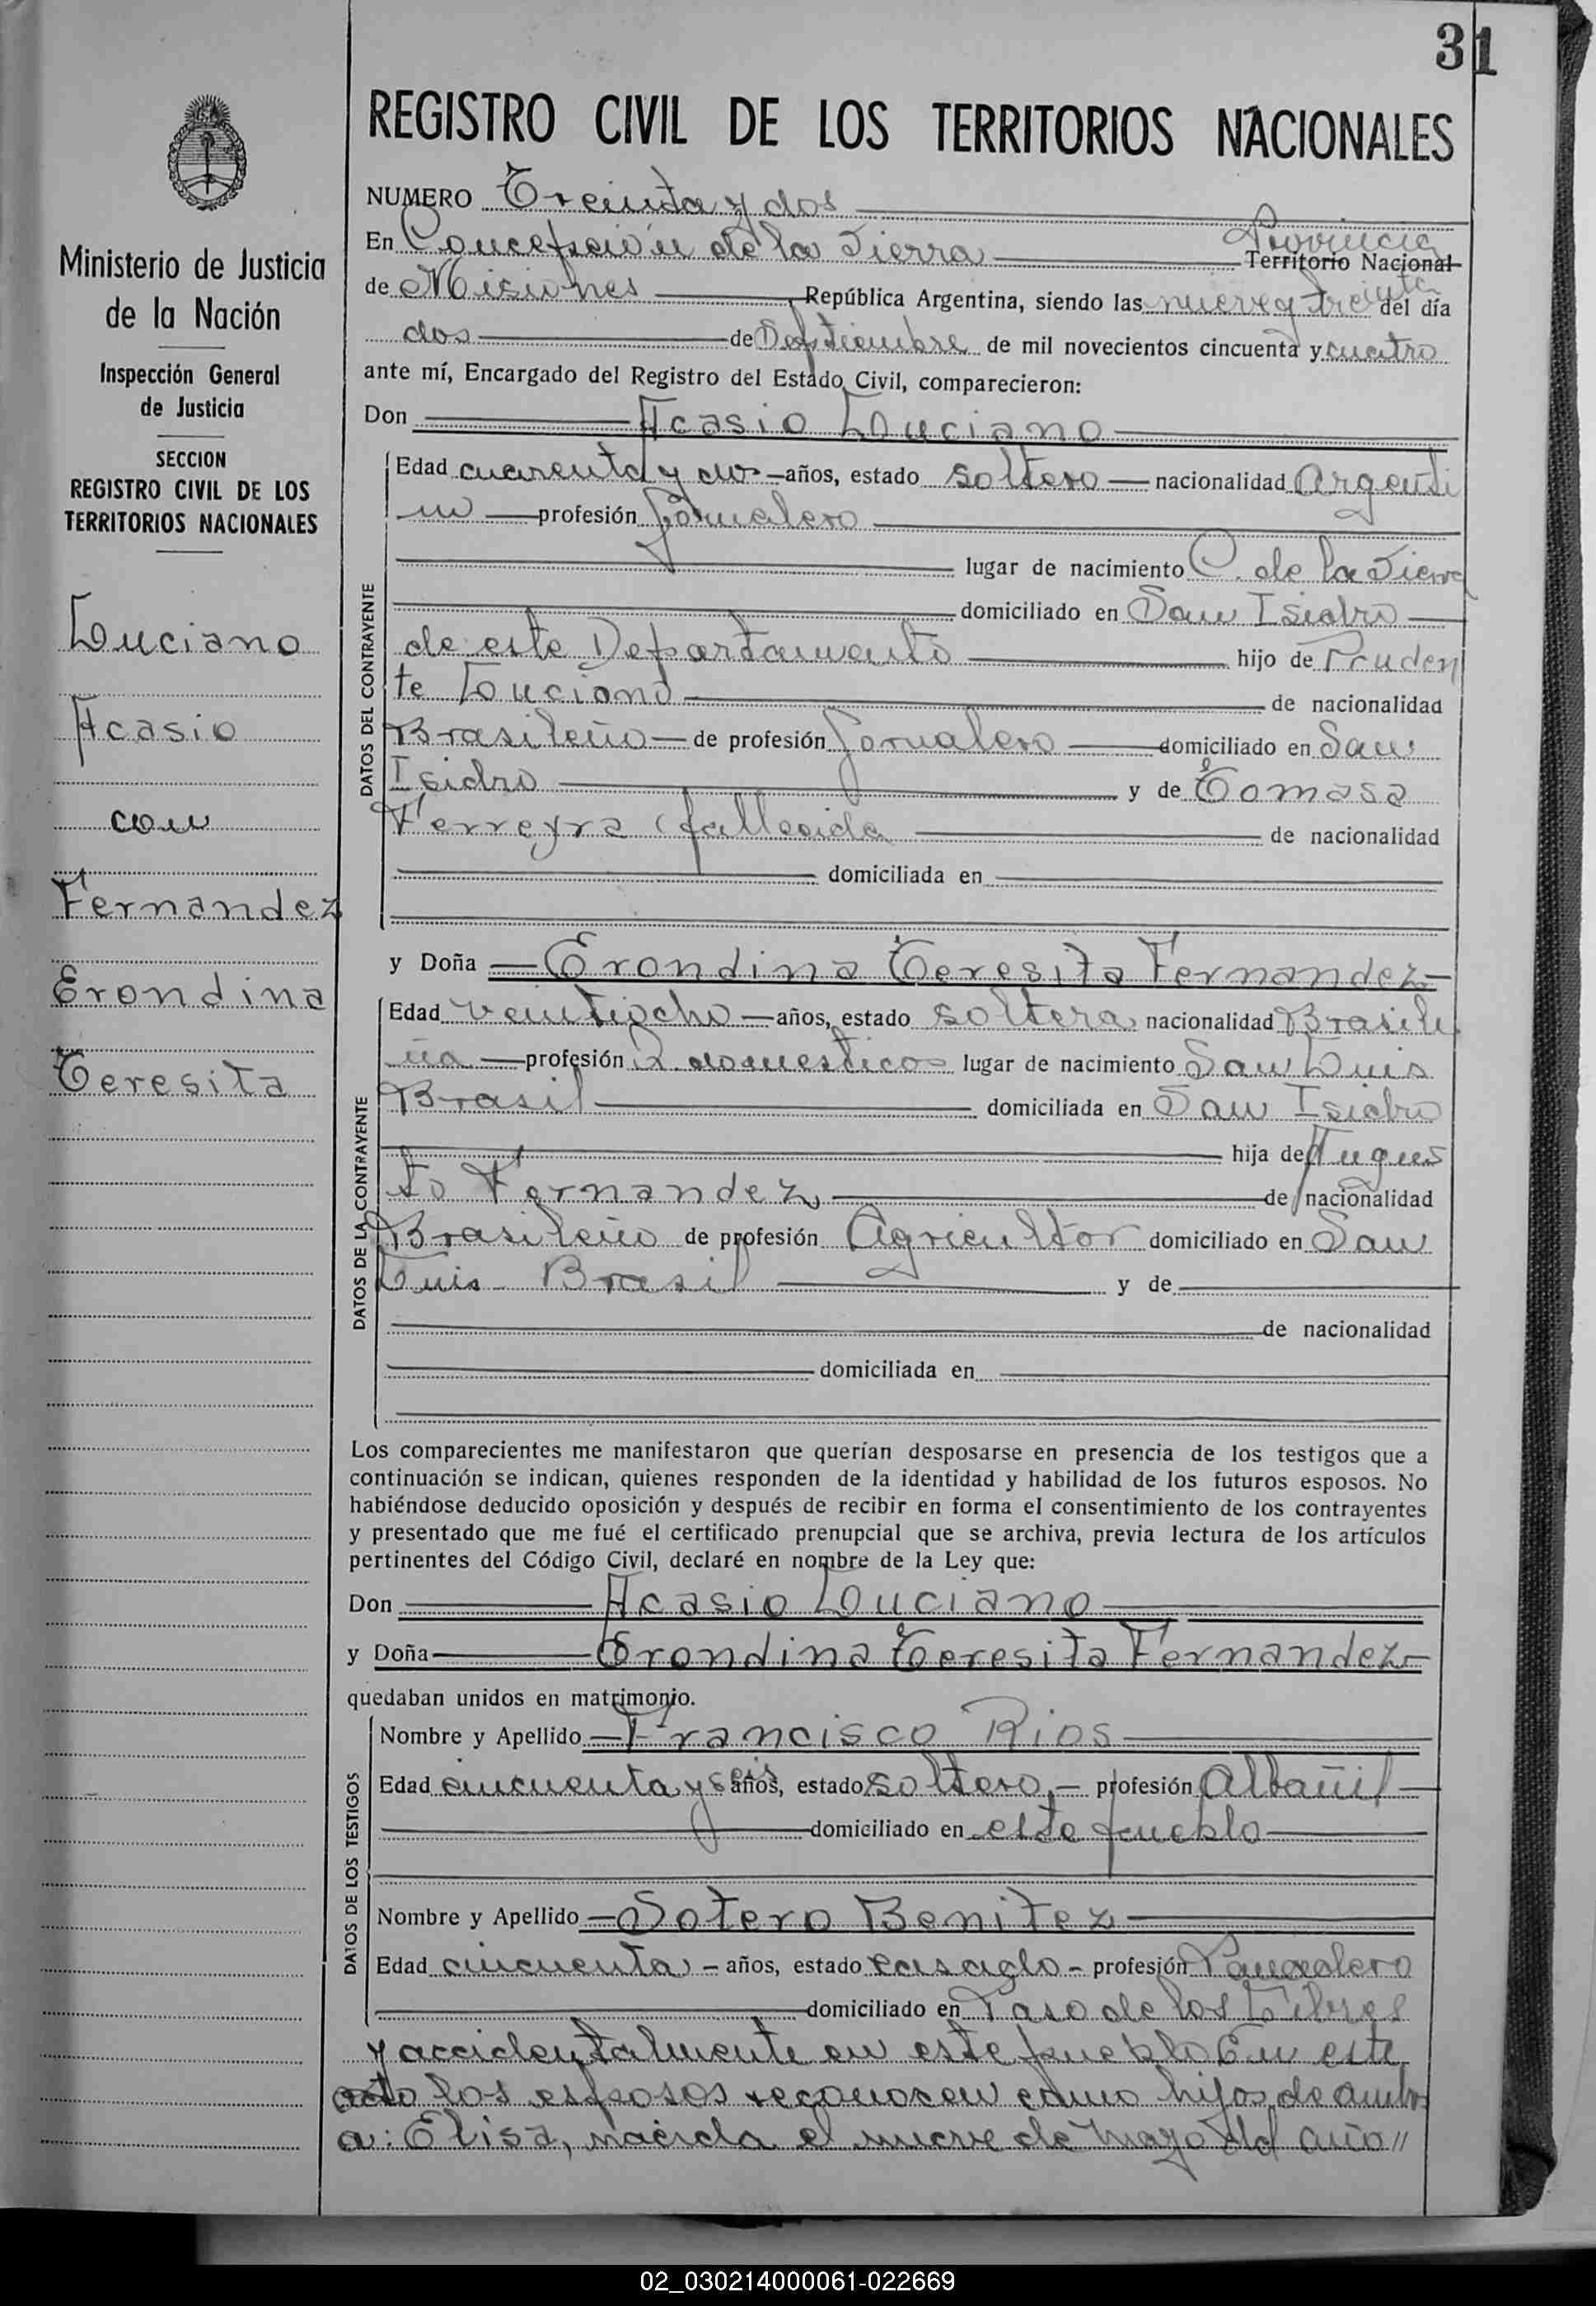 31
REGISTRO CIVIL DE LOS TERRITORIOS NACIONALES
Ministerio de Justicia
de la Nación
Inspección General
de Justicia
SECCION
REGISTRO CIVIL DE LOS
TERRITORIOS NACIONALES
Luciano
Acasio
con
Fernandez
Erondina
Teresita
NUMERO Treinta y dos
Provincia
En Concepción de la Sierra Territorio Nacional
de Misiones, República Argentina, siendo las nueve y treinta del día
dos de Septiembre de mil novecientos cincuenta y cuatro
ante mí, Encargado del Registro del Estado Civil, comparecieron:
Don Acasio Luciano
DATOS DEL CONTRAYENTE
Edad cuarenta y dos años, estado soltero nacionalidad Argenti
no profesión Jornalero
lugar de nacimiento C. de la Sierra
domiciliado en San Isidro
de este Departamento hijo de Pruden
te Luciano de nacionalidad
Brasileño de profesión Jornalero domiciliado en San
Isidro y de Tomasa
Ferreyra (fallecida de nacionalidad
domiciliada en
y Doña Erondina Teresita Fernandez
DATOS DE LA CONTRAYENTE
Edad veintiocho años, estado soltera nacionalidad Brasile
ña profesión Q. domesticos lugar de nacimiento San Luis
Brasil domiciliada en San Isidro
hija de Augus
to Fernandez de nacionalidad
Brasileño de profesión Agricultor domiciliado en San
Luis Brasil y de
de nacionalidad
domiciliada en
Los comparecientes me manifestaron que querían desposarse en presencia de los testigos que a
continuación se indican, quienes responden de la identidad y habilidad de los futuros esposos. No
habiéndose deducido oposición y después de recibir en forma el consentimiento de los contrayentes
y presentado que me fué el certificado prenupcial que se archiva, previa lectura de los artículos
pertinentes del Código Civil, declaré en nombre de la Ley que:
Don Acasio Luciano
y Doña Erondina Teresita Fernandez
quedaban unidos en matrimonio.
DATOS DE LOS TESTIGOS
Nombre y Apellido Francisco Rios
Edad cincuenta y seis años, estado soltero, profesión Albañil
domiciliado en este pueblo
Nombre y Apellido Sotero Benitez
Edad cincuenta años, estado casado profesión
domiciliado en Paso de los Libres
y accidentalmente en este pueblo En este
acto los esposos reconocen como hijos de ambos
a: Elisa, nacida el nueve de mayo del año //
02_030214000061-022669